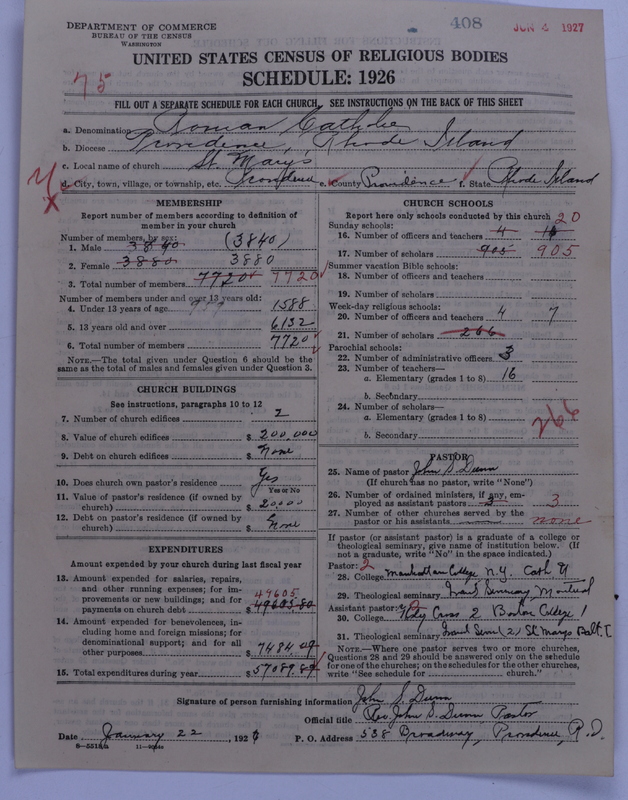 DEPARTMENT OF COMMERCE
BUREAU OF THE CENSUS
WASHINGTON
408
JUN 1927
UNITED STATES CENSUS OF RELIGIOUS BODIES
75
SCHEDULE: 1926
FILL OUT A SEPARATE SCHEDULE FOR EACH CHURCH. SEE INSTRUCTIONS ON THE BACK OF THIS SHEET
a. Denomination Roman Catholic
b. Diocese Providence, Rhode Island
c. Local name of church St. Mary's
d. City, town, village, or township, etc. Providence e. County Providence f. State Rhode Island
MEMBERSHIP
Report number of members according to definition of
member in your church
Number of members, by sex:
1. Male 3840 (3840)
2. Female 3880 3880
3. Total number of members 7720 7720
Number of members under and over 13 years old:
4. Under 13 years of age 1588
5. 13 years old and over 6132
6. Total number of members 7720
NOTE.—The total given under Question 6 should be the
same as the total of males and females given under Question 3.
CHURCH BUILDINGS
See instructions, paragraphs 10 to 12
7. Number of church edifices 2
8. Value of church edifices $ 200,000
9. Debt on church edifices $ None
10. Does church own pastor's residence Yes
Yes or No
11. Value of pastor's residence (if owned by
church) $ 20000
12. Debt on pastor's residence (if owned by
church) $ None
EXPENDITURES
Amount expended by your church during last fiscal year
13. Amount expended for salaries, repairs,
and other running expenses; for im-
provements or new buildings; and for
payments on church debt $ 49605 49605.80
14. Amount expended for benevolences, in-
cluding home and foreign missions; for
denominational support; and for all
other purposes $ 7484.09
15. Total expenditures during year $ 57089.89
CHURCH SCHOOLS
Report here only schools conducted by this church
Sunday schools: 20
16. Number of officers and teachers 4 16
17. Number of scholars 905 905
Summer vacation Bible schools:
18. Number of officers and teachers
19. Number of scholars
Week-day religious schools:
20. Number of officers and teachers 4 7
21. Number of scholars 266
Parochial schools:
22. Number of administrative officers 3
23. Number of teachers—
a. Elementary (grades 1 to 8) 16
b. Secondary
24. Number of scholars—
a. Elementary (grades 1 to 8) 266
b. Secondary
PASTOR
25. Name of pastor John S. Dunn
(If church has no pastor, write "None")
26. Number of ordained ministers, if any, em-
ployed as assistant pastors 3 3
27. Number of other churches served by the
pastor or his assistants none
If pastor (or assistant pastor) is a graduate of a college or
theological seminary, give name of institution below. (If
not a graduate, write "No" in the space indicated.)
Pastor: 2
28. College Manhattan College N.Y. Cath
29. Theological seminary Grand Seminary Montreal
Assistant pastor:
30. College Holy Cross 2 Boston College 1
31. Theological seminary Grand Sem (2) St Marys Balt.
NOTE.—Where one pastor serves two or more churches,
Questions 28 and 29 should be answered only on the schedule
for one of the churches; on the schedules for the other churches,
write "See schedule for church."
Signature of person furnishing information John S. Dunn
Official title Rev. John S. Dunn Pastor
Date January 22, 192 P. O. Address 538 Broadway, Providence, R.I.